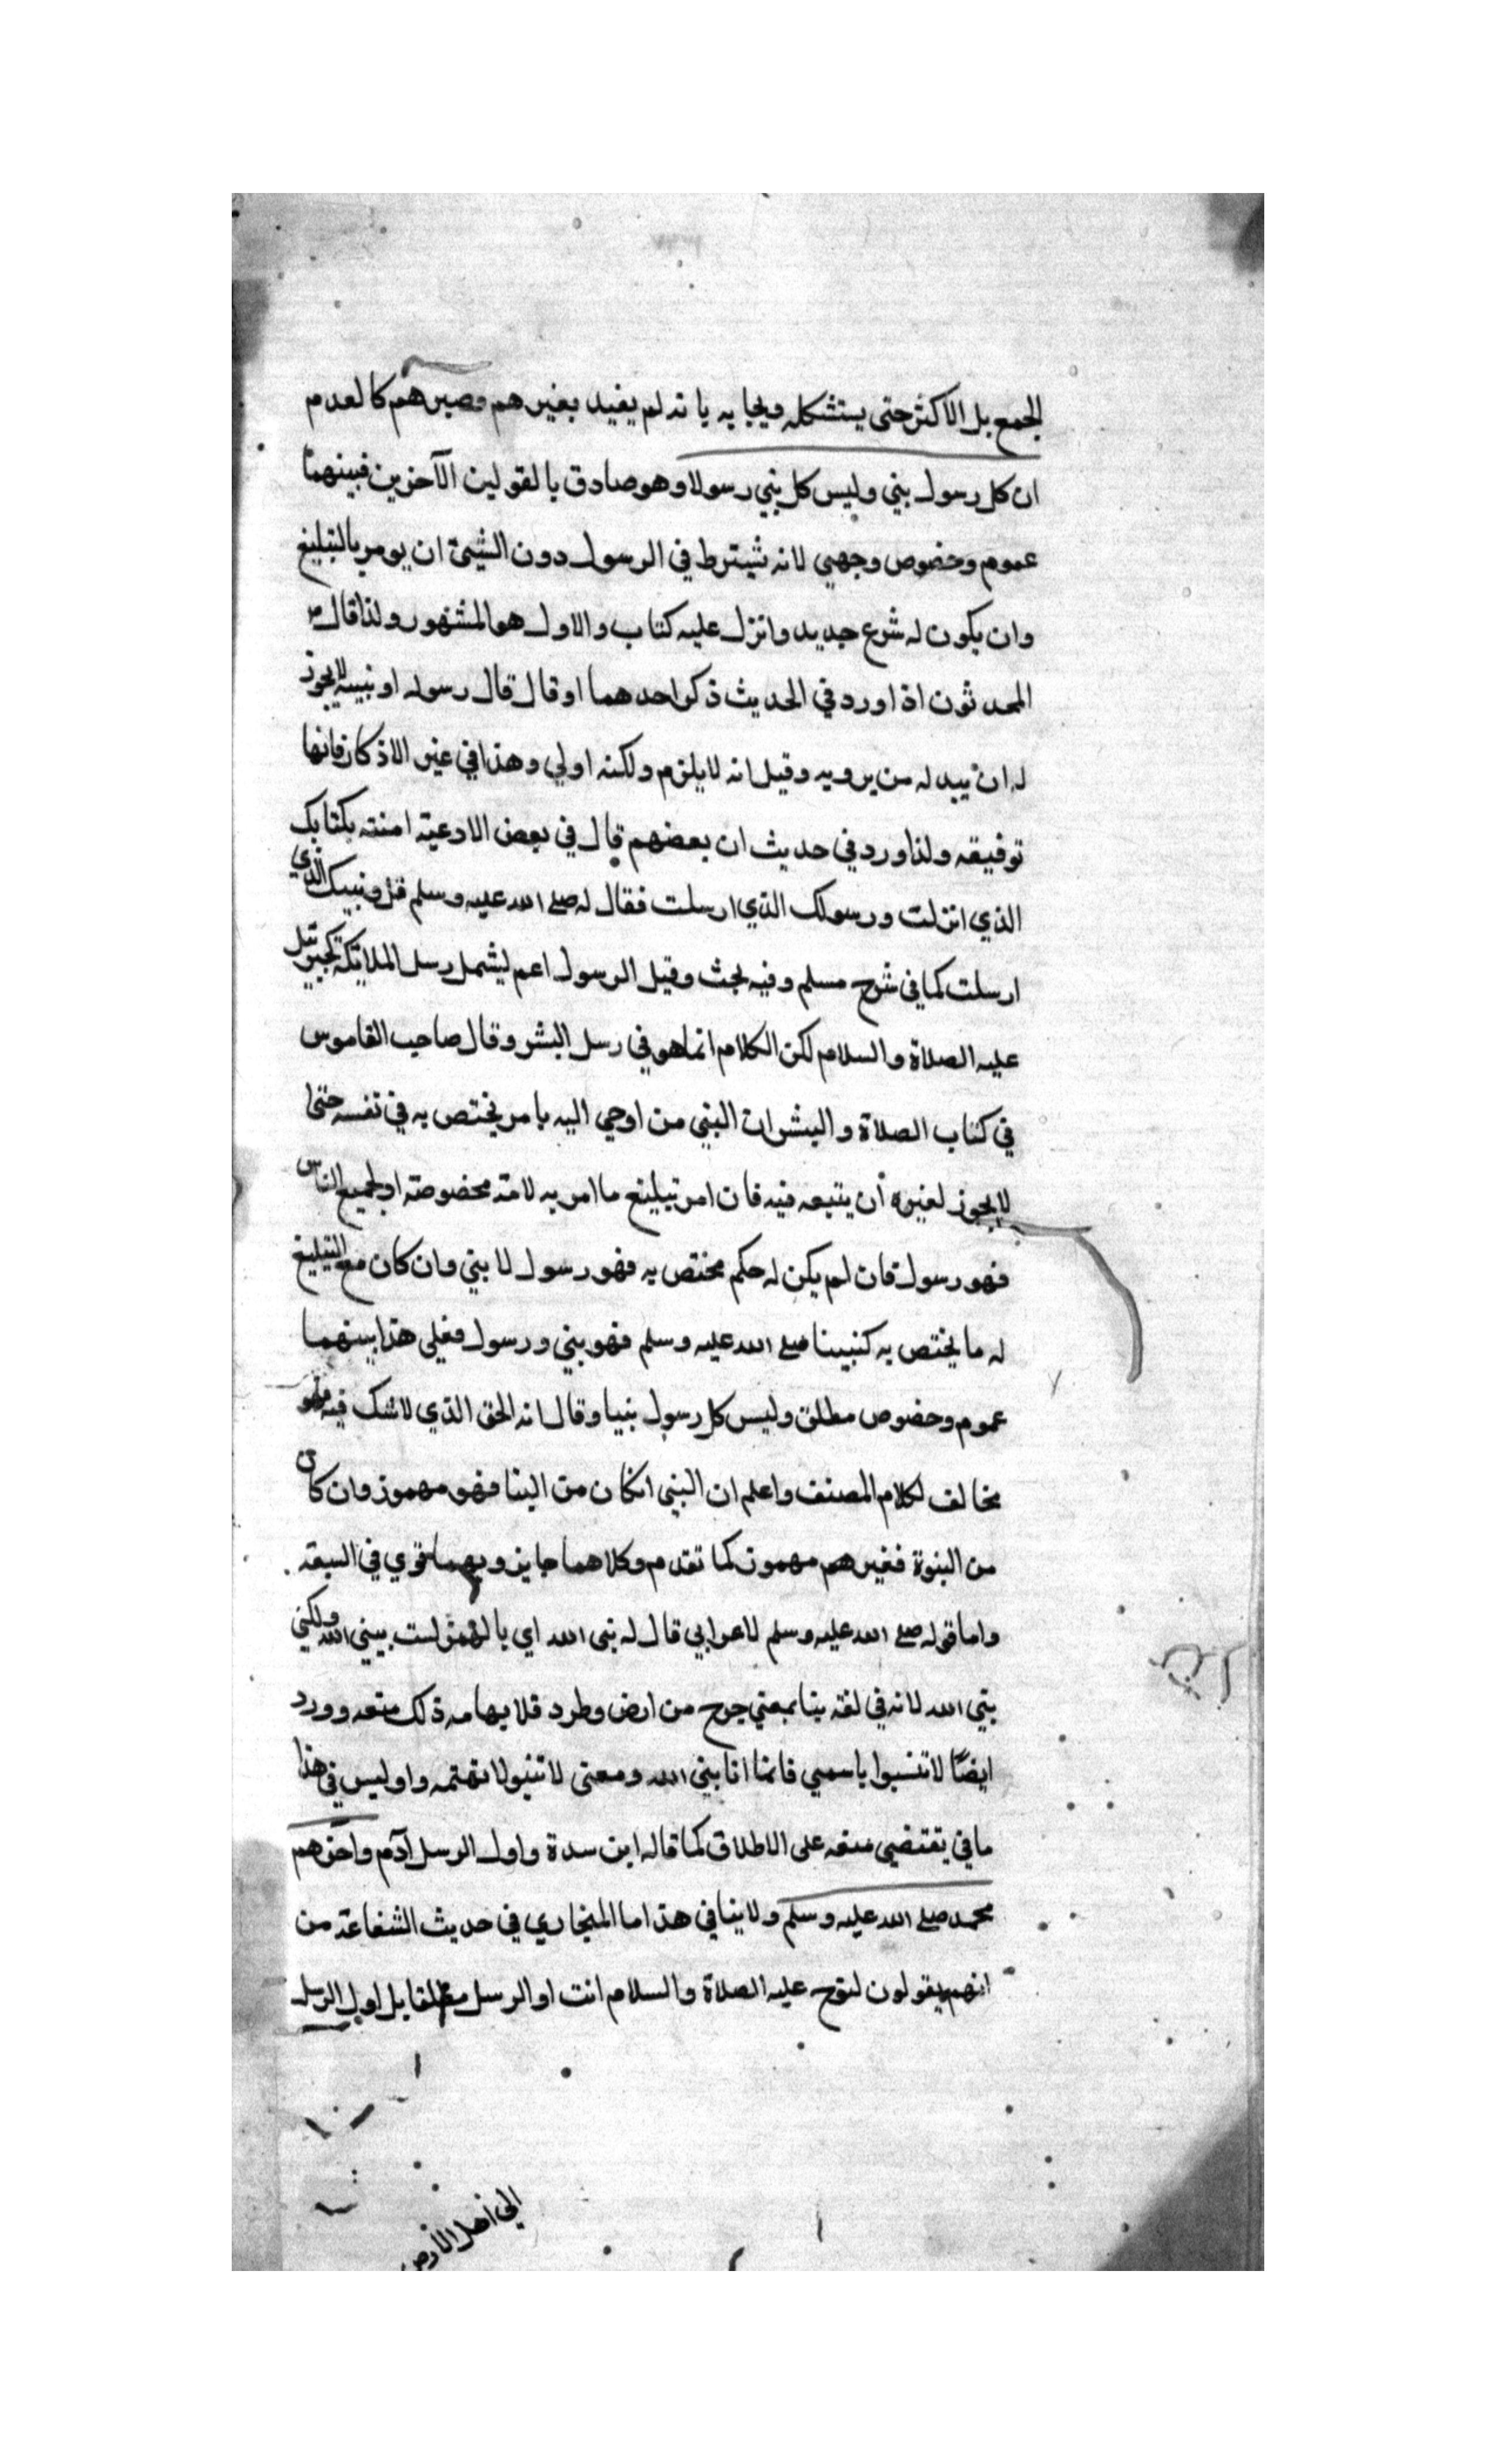 الجمع بل الاكثر حتى يستشكله ويجابه يا نه لم يفيد بغيرهم وصيرهم كالعدم
ان كل رسول بني وليس كل بني رسولا وهو صادق بالقولين الآخرين فبينهما
عموم وخصوص وجهي لانه يشترط في الرسول دون الشيئ ان يومر بالتبليغ
وان يكون له شرع جديد وانزل عليه كتاب والاول هو المشهور ولذا قال
المحدثون اذا ورد في الحديث ذكر احدهما او قال قال رسوله او نبيه لا يجوز
له ان يبدله من يرويه وقيل انه لا يلزم ولكنه اولي وهذا في غير الاذكار فانها
توفيقه ولذا ورد في حديث ان بعضهم قال في بعض الادعيته امنته بكتابك
الذي انزلت ورسولك الذي ارسلت فقال له صلى الله عليه وسلم قل ونبيك الذي
ارسلت كما في شرح مسلم وفيه بحث وقيل الرسول اعم ليشمل رسل الملايكة كجبريل
عليه الصلاة والسلام لكن الكلام انما هو في رسل البشر وقال صاحب القاموس
في كتاب الصلاة والبشر ان النبي من اوحي اليه بامر يختص به في نفسه حتى
لا يجوز لغيره أن يتبعه فيه فان امر بتبليغ ما امر به لامته مخصوصته او لجميع الناس
فهو رسول فان لم يكن له حكم مختص به فهو رسول لا بني وان كان مع التبليغ
له ما يختص به كنبينا صلى الله عليه وسلم فهو بني ورسول فعلى هذا بينهما
عموم وخصوص مطلق وليس كل رسول بنيا وقال انه الحق الذي لا شك فيه وهو
مخالف لكلام المصنف واعلم ان النبي انكان من النبا فهو مهموز وان كان
من النبوة فغيرهم مهموز كما تقدم وكلاهما جايز وبهما قري في السبعة
واما قوله صلى الله عليه وسلم لاعرابي قال له بنى الله اي بالهمز لست بنبي الله ولكني
بني الله لانه في لغته بنا بمعني جرح من ارض وطرد فلايهامه ذلك منعه وورد
ايضًا لا تنسبوا باسمي فانما انا بني الله ومعنى لا تنبو لا تهتمه واو ليس في هذا
ما في يقتضي منعه على الاطلاق كما قاله ابن سدة واول الرسل آدم وآخرهم
محمد صلى الله عليه وسلم ولا ينافي هذا ما المنجاري في حديث الشفاعة من
انهم يقولون لنوح عليه الصلاة والسلام انت او الرسل اول الرسل
الى اهل الأرض